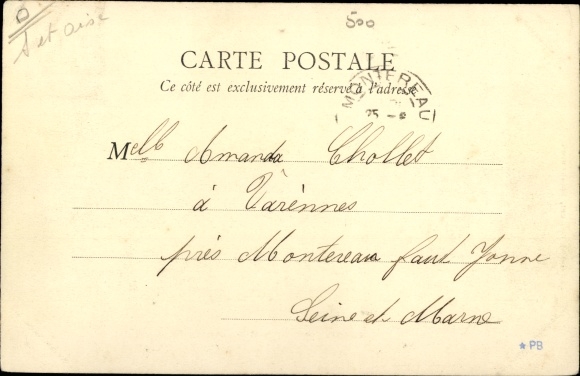 D
S et Oise
500
CARTE POSTALE
Ce côté est exclusivement réservé à l'adresse
MONTEREAU
25
Melle Amanda Chollet
à Varènnes
près Montereau faut Yonne
Seine et Marne
★PB